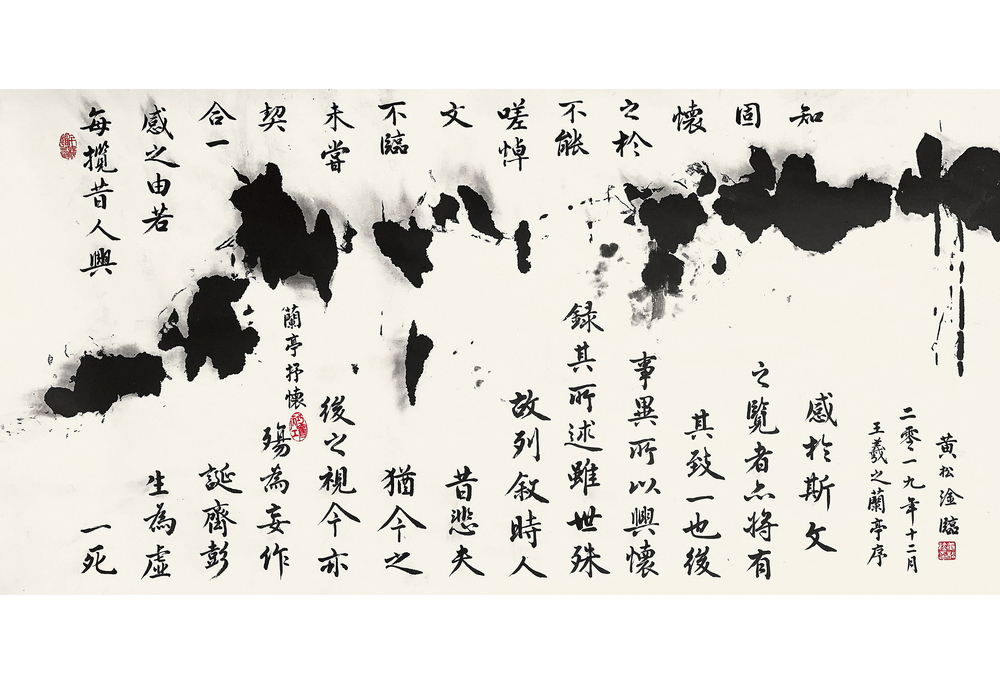 每攬昔人興
感之由若
合一
契
未嘗
不臨
文
嗟悼
不能
之於
懷
固
知
一死
生為虛
誕齊彭
殤為妄作
後之視今亦
猶今之
昔悲夫
故列叙時人
録其所述雖世殊
事異所以興懷
其致一也後
之覽者亦將有
感於斯文
蘭亭抒懷
王羲之蘭亭序
二零一九年十二月
黃松淦臨